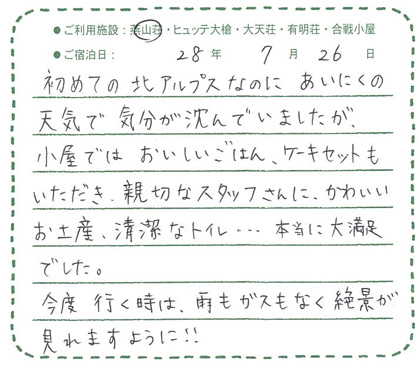 ●ご利用施設：燕山荘・ヒュッテ大槍・大天荘・有明荘・合戦小屋
●ご宿泊日： 28 年 7 月 26 日
初めての北アルプスなのに あいにくの
天気で 気分が沈んでいましたが、
小屋では おいしいごはん、ケーキセットも
いただき、親切なスタッフさんに、かわいい
お土産、清潔なトイレ… 本当に大満足
でした。
今度 行く時は、雨もガスもなく絶景が
見れますように!!